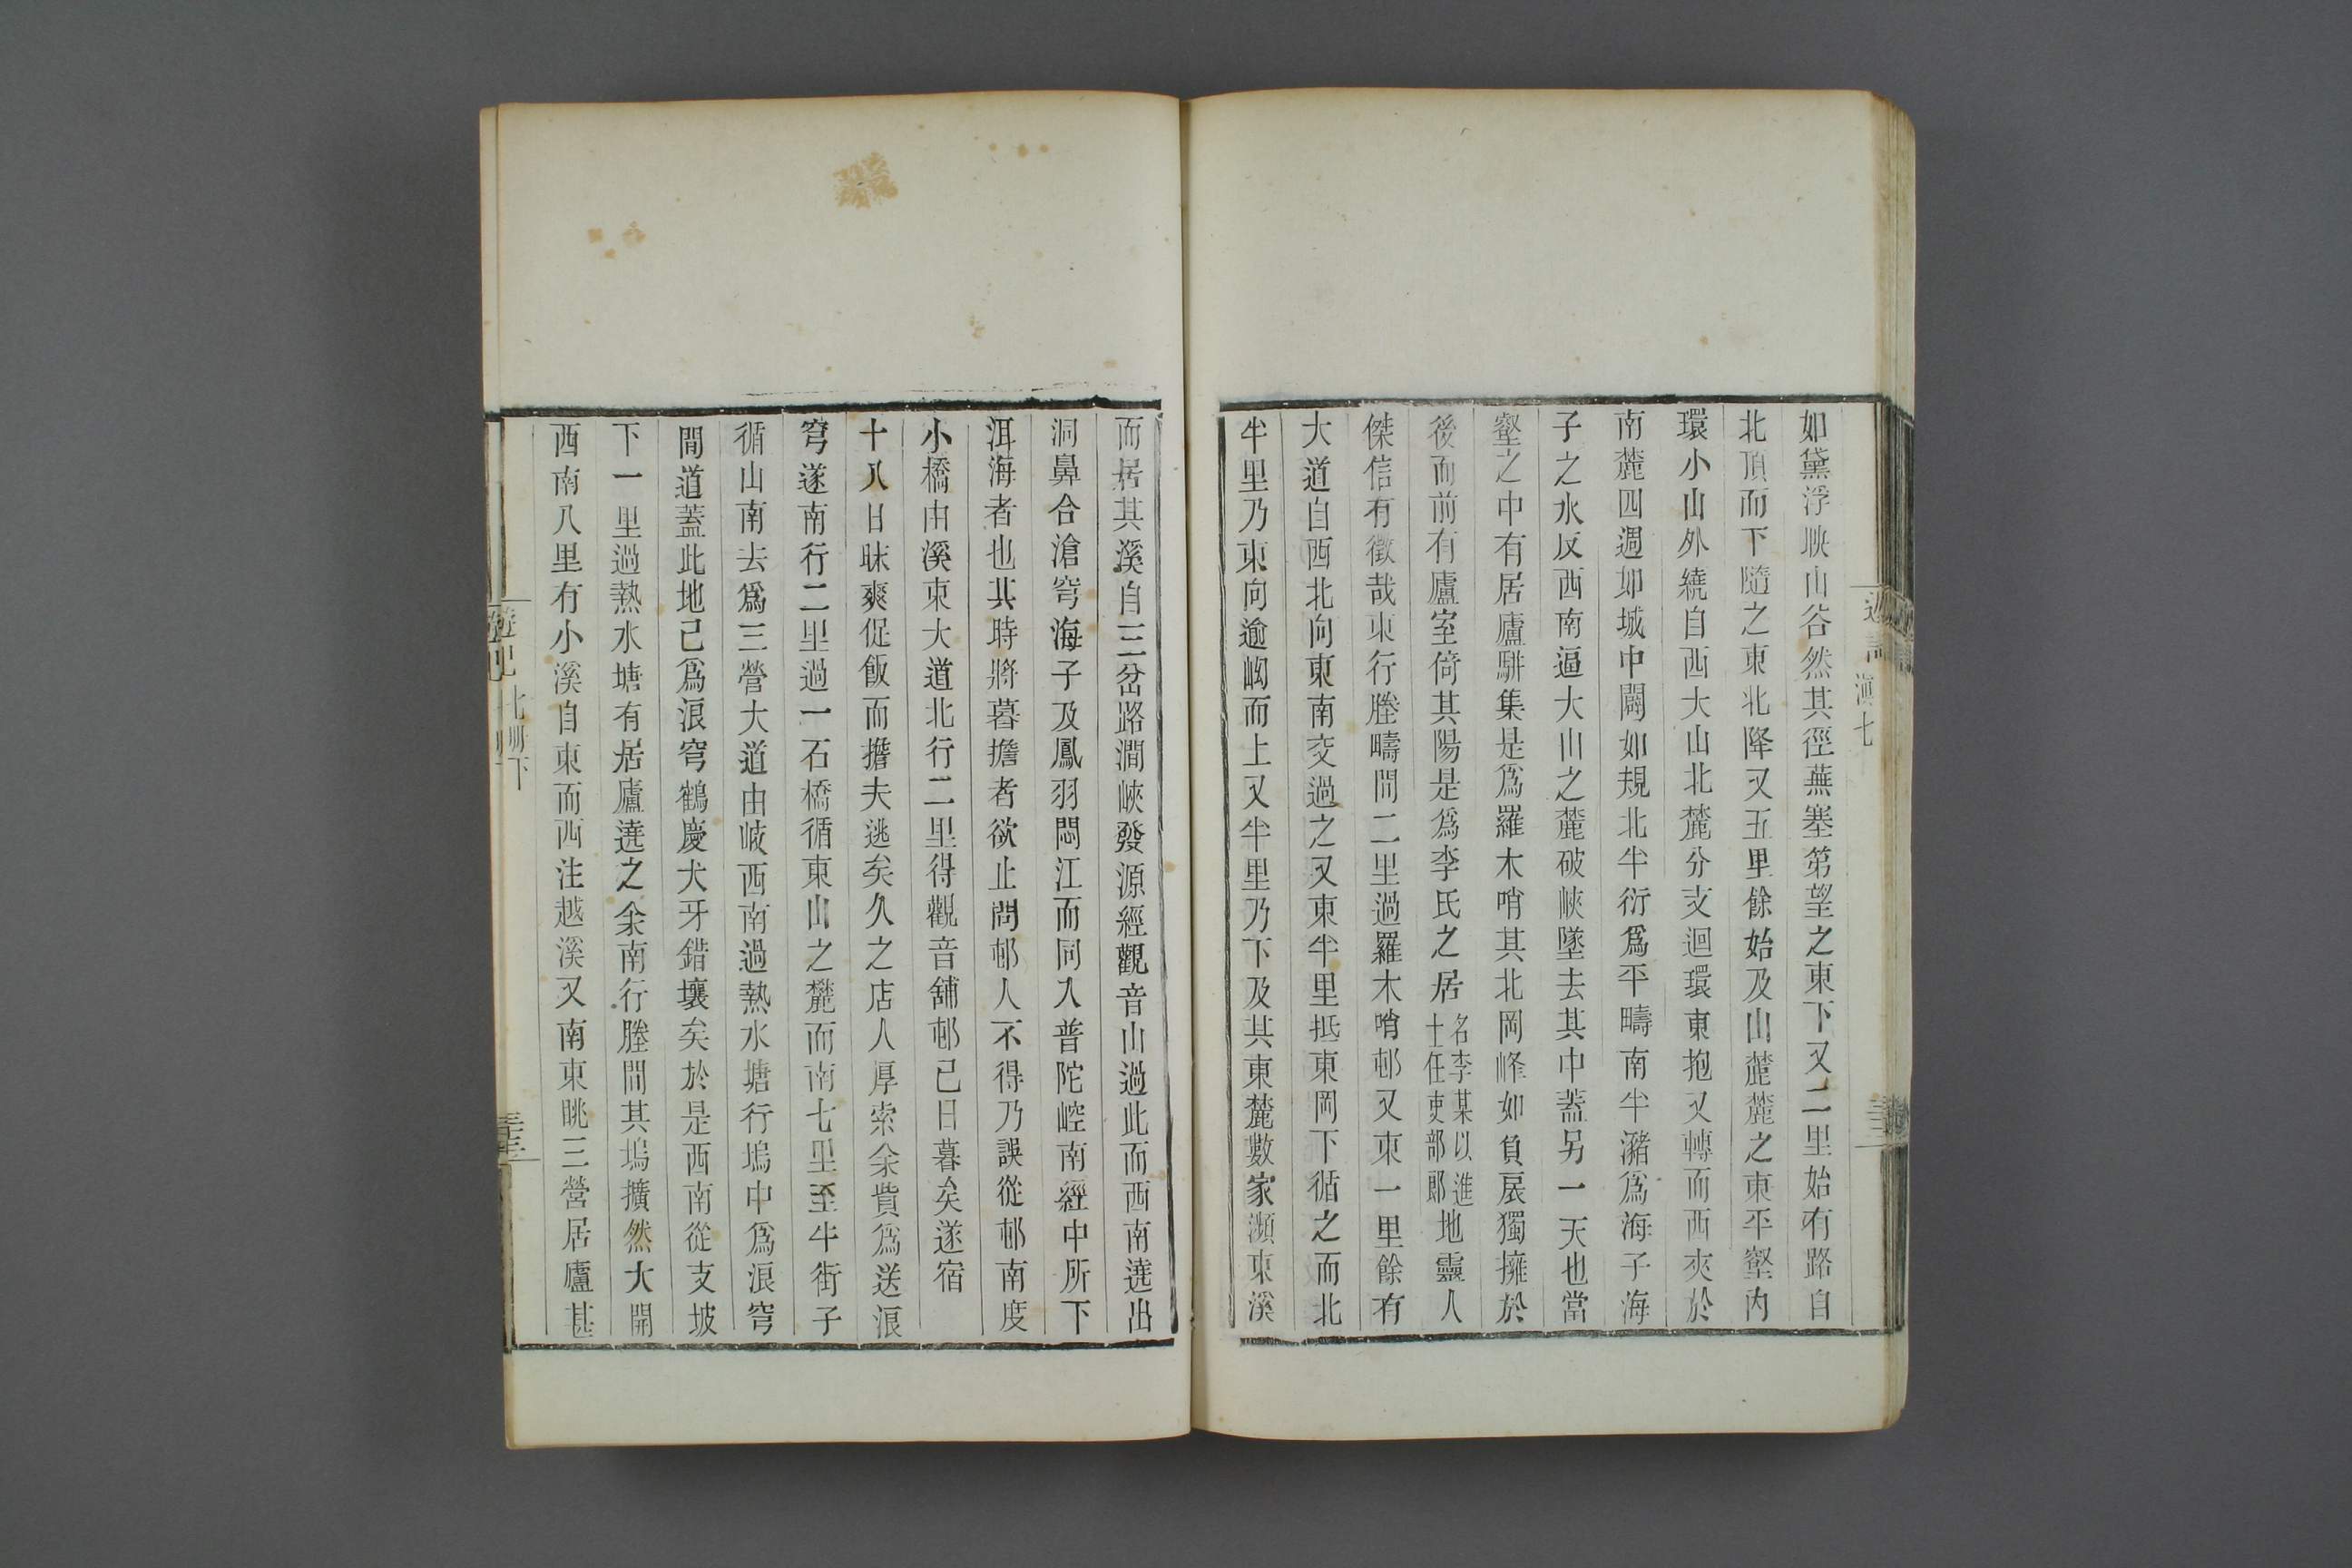 如黛浮映山谷然其徑蕪塞第望之東下又二里始有路自
北頂而下隨之東北降又五里餘始及山麓麓之東平壑內
環小山外繞自西大山北麓分支迴環東抱又轉而西夾於
南麓四週如城中闢如規北半衍爲平疇南半瀦爲海子海
子之水反西南逼大山之麓破峽墜去其中蓋另一天也當
壑之中有居廬駢集是爲羅木哨其北岡峰如負扆獨擁於
後而前有廬室倚其陽是爲李氏之居名李某以進士任吏部郎地靈人
傑信有徵哉東行塍疇間二里過羅木哨邨又東一里餘有
大道自西北向東南交過之又東半里抵東岡下循之而北
半里乃東向逾岰而上又半里乃下及其東麓數家瀕東溪
而居其溪自三岔路澗峽發源經觀音山過此而西南遶出
洞鼻合滄穹海子及鳳羽悶江而同入普陀崆南經中所下
洱海者也其時將暮擔者欲止問邨人不得乃誤從邨南度
小橋由溪東大道北行二里得觀音舖邨已日暮矣遂宿
十八日昧爽促飯而擔夫逃矣久之店人厚索余貲爲送浪
穹遂南行二里過一石橋循東山之麓而南七里至牛街子
循山南去爲三營大道由岐西南過熱水塘行塢中爲浪穹
間道蓋此地已爲浪穹鶴慶犬牙錯壤矣於是西南從支坡
下一里過熱水塘有居廬遶之余南行塍間其塢擴然大開
西南八里有小溪自東而西注越溪又南東眺三營居廬甚
遊記
滇七